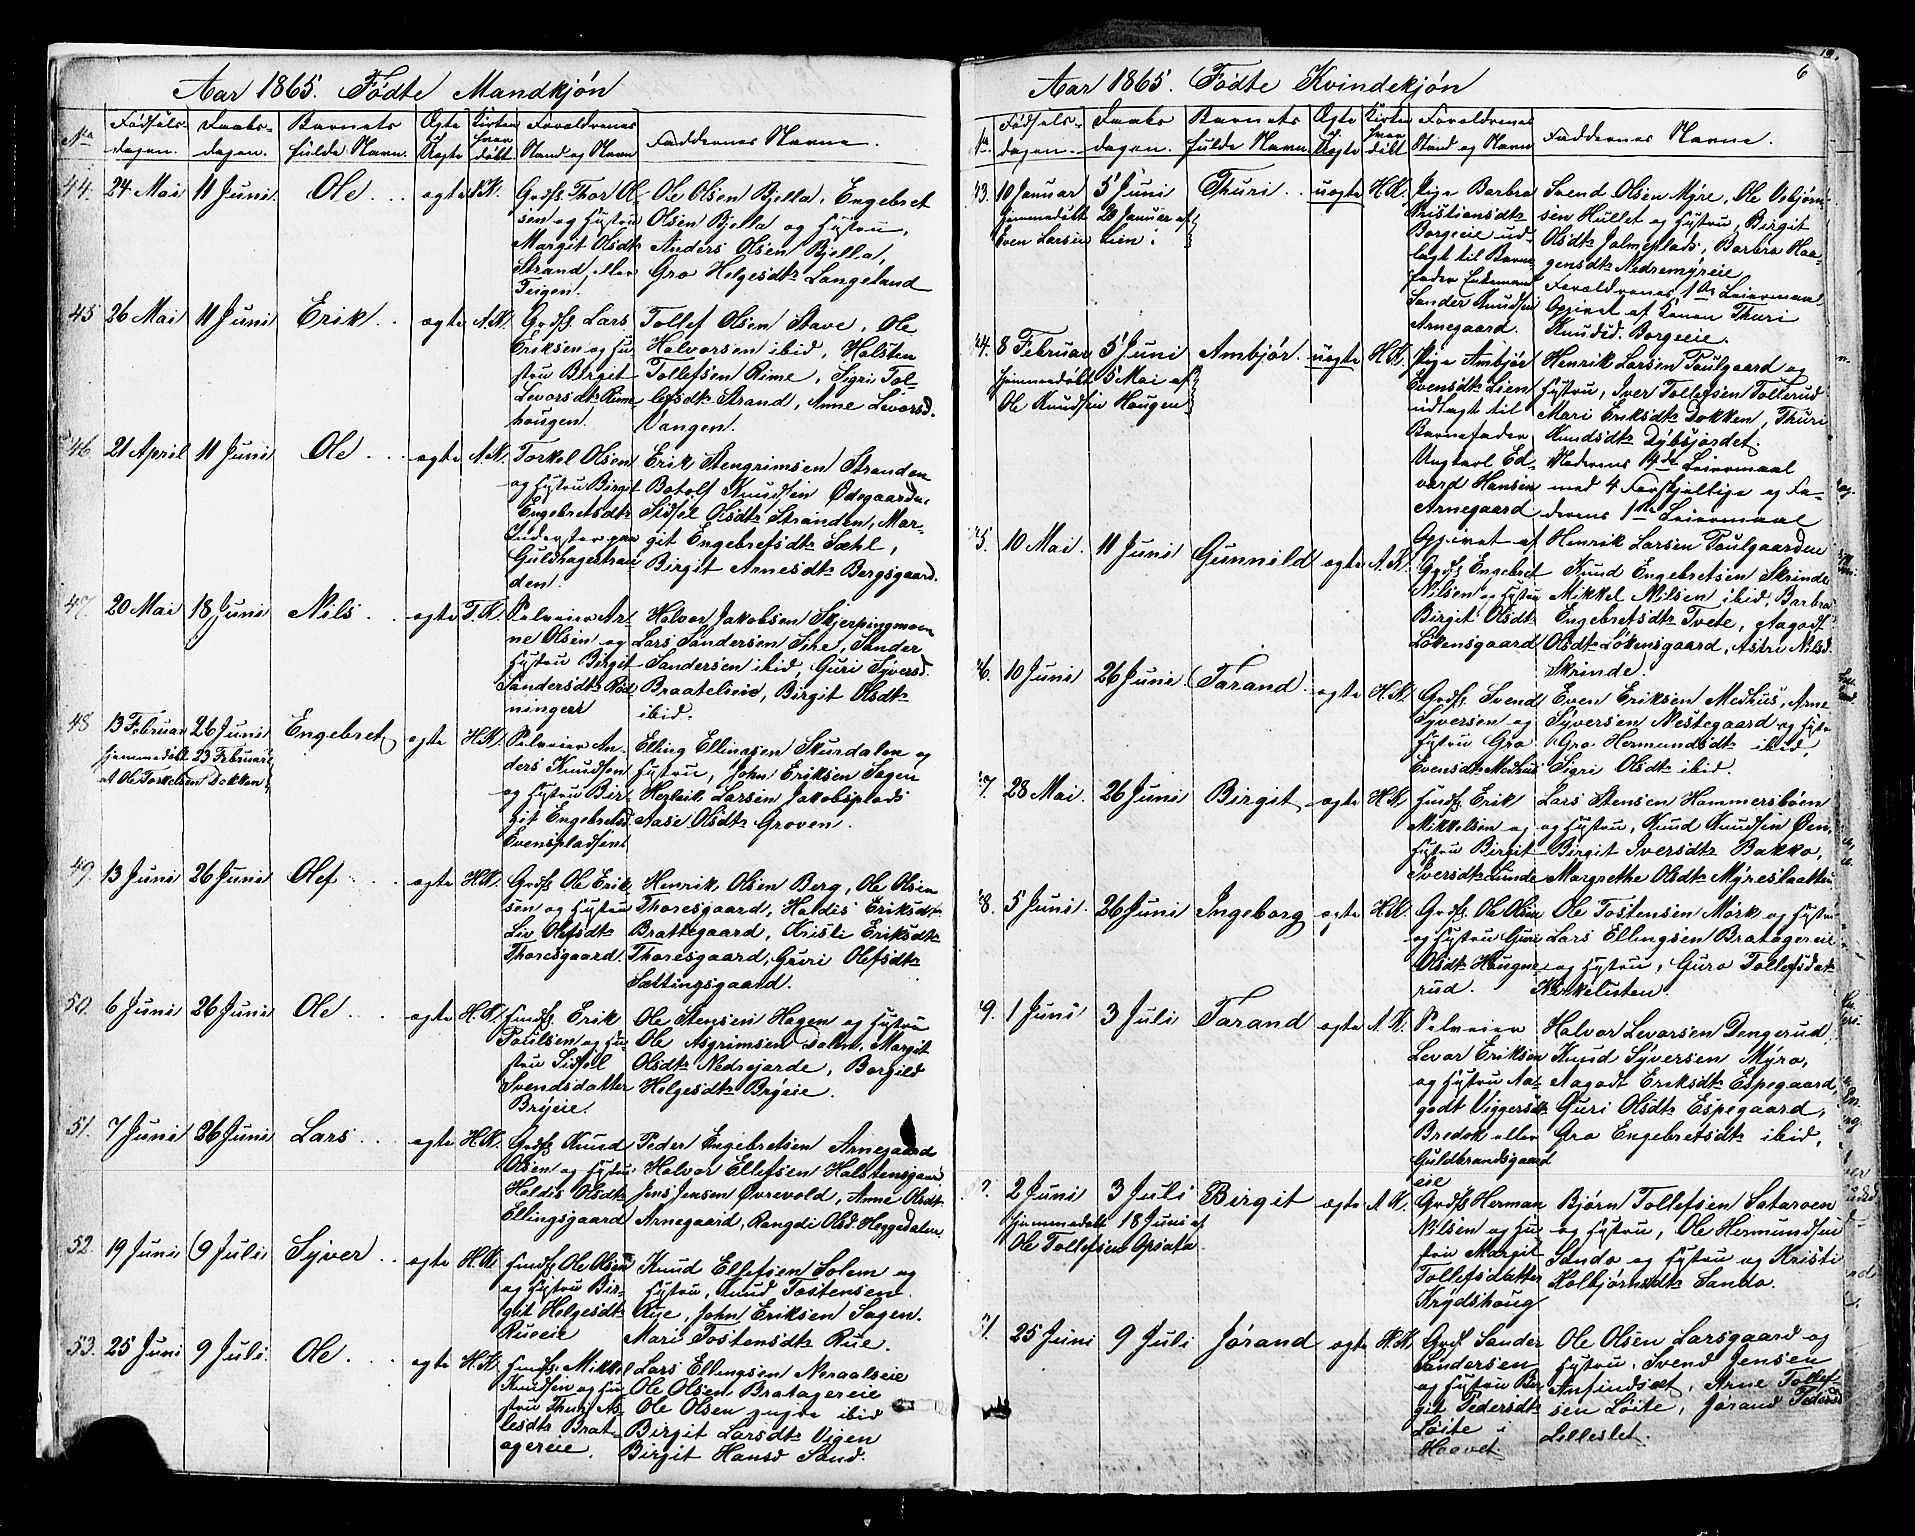 Aar 1865. Fødte Mandkjøn
No
Fødsels-
dagen.
Daabs-
dagen.
Barnets
fulde Navn.
Ægte
Uegte
Kirken
hvor
døbt
Forældrenes
Stand og Navn
Faddernes Navne.
44. 24 Mai 11 Juni Ole ... ægte A.K.
Grdbr. Thor Ol-
sen og Hustru
Margit Olsdtr
Strand, eller
Teigen.
Ole Olsen Bjella, Engebret
Olsen Bjella og Hustru,
Anders Olsen Bjella,
Gro Helgesdtr Langeland
45 26 Mai 11 Juni Erik ... ægte A.K.
Grdbr. Lars
Eriksen og Hu
stru Birgit
Levorsdtr Rime
hougen.
Tollef Olsen Stave, Ole
Halvorsen ibid, Halsten
Tollefsen Rime, Sigri Tol-
lefsdtr Strand, Anne Levorsd.
Vangen.
46. 21 April 11 Juni Ole ... ægte A.K.
Torkel Olsen
og Hustru Birgit
Engebretsdtr
Inderster paa
Guldhagestran
den.
Erik Stengrimsen Stranden
Botolf Knudsen Ødegaarden,
Sidsel Olsdtr Stranden, Mar-
git Engebretsdtr Sæhl,
Birgit Arnesdtr Bergsgaard.
47. 20 Mai 18 Juni Nils ... ægte T.K.
Selveier Ar-
ne Olsen og
Hustru Birgit
Sandersdtr Rød
ningen
Halvor Jakobsen Skjerpingmoen
Lars Sandersen Sire, Sander
Sandersen ibid, Guri Syversd.
Braatelieie, Birgit Olsdtr
ibid.
48 13 Februar 26 Juni Engebret ægte H.K.
hjemmedøbt 23 Februar
af Ole Torkelsen Dokken
Selveier An-
ders Knudsen
og Hustru Bir-
git Engebretsd
Evenspladsen
Elling Ellingsen Skurdalen og
Hustru, John Eriksen Sagen
Herleik Larsen Jakobsplads
Aase Olsdtr Groven.
49. 13 Juni 26 Juni Olef ægte H.K.
Grdbr. Ole Erik-
sen og Hustru
Liv Olefsdtr
Thoresgaard.
Henrik Olsen Berg, Ole Olsen
Thoresgaard, Haldis Eriksdtr
Brattegaard, Kristi Eriksdtr
Thoresgaard, Guri Olefsdtr
Sættingsgaard.
50. 6 Juni 26 Juni Ole ... ægte H.K.
Husm. Erik
Paulsen og Hu-
stru Sidsel
Svendsdatter
Bryeie.
Ole Stensen Hagen og Hustru
Ole Asgrimsen Dalen, Margit
Olsdtr Nedrejorde, Borgild
Helgesdtr Bryeie.
51. 7 Juni 26 Juni Lars ... ægte H.K.
Grdbr. Knud
Olsen og Hustru
Haldis Olsdtr
Ellingsgaard
Peder Engebretsen Arnegaard
Halvor Ellefsen Halstensgaard,
Jens Jensen Øvrevold, Anne Olsdtr
Arnegaard, Rangdi Olsd Heggedalen
52 19 Juni 9 Juli Syver .. ægte H.K.
Husm. Ole Olsen
og Hustru Bir-
git Helgesdtr
Rueeie
Knud Ellefsen Solem og
Hustru, Knud Tostensen
Rue, John Eriksen Sagen.
Mari Tostensdtr Rue.
53. 25 Juni 9 Juli. Ole .... ægte H.K.
Husm. Mikkel
Knudsen og Hu-
stru Thuri As-
lesdtr Brat-
agereie.
Lars Ellingsen Noraalseie
Ole Olsen Bratagereie
Ole Olsen yngre ibid
Birgit Larsdtr Vigen
Birgit Hansd Sand.
Aar 1865. Fødte Kvindekjøn
6
No
Fødsels-
dagen.
Daabs
dagen.
Barnets
fulde Navn
Ægte
Uegte
Kirken
hvor
døbt
Forældrenes
Stand og Navn
Faddernes Navne.
43. 10 Januar 5 Juni Thuri .. uægte H.K.
hjemmedøbt 20 Januar af
Even Larsen Lien.
Pige Barbra
Kristiansdtr
Borgeeie ud-
lagt til Barne
fader Enkemand
Sander Knudsen
Arnegaard.
Svend Olsen Myre, Ole Vebjørn-
sen Hullet og Hustru, Birgit
Olsdtr Jalmeplads, Barbra Haa-
gensdtr Nedremyreie
Forældrenes 1ste Leiermaal
Opgivet af Konen Thuri
Knudsd. Borgeeie.
44. 8 Februar 5 Juni Ambjør. uægte H.K.
hjemmedøbt 5 Mai af
Ole Knudsen Hougen
Pige Ambjør
Evensdtr Lien
udlagt til
Barnefader
Ungkarl Ed-
vard Hansen
Arnegaard
Opgivet af
Henrik Larsen Poulgaard og
Hustru, Iver Tollefsen Tollerud
Mari Eriksdtr Dokken, Thuri
Knudsdtr Dybsjordet.
Moderens 4de Leiermaal
med 4 Forskjellige og Fa-
derens 1ste Leiermaal
Henrik Larsen Poulgaarden
45. 10 Mai. 11 Juni Gunnild ægte A.K.
Grdbr Engebret
Nilsen og Hustru
Birgit Olsdt
Løkensgaard
Knud Engebretsen Skrinde
Mikkel Nilsen ibid, Barbra
Engebretsdtr Tvete, Aagodt
Olsdtr Løkensgaard, Astri Nilsd.
Skrinde.
46. 10 Juni 26 Juni Tarand. ægte H.K.
Grdbr. Svend
Syversen og
Hustru Gro
Evensdtr Medhus
Even Eriksen Medhus, Arne
Syversen Nestegaard og Hustru
Gro Hermundsdtr ibid,
Sigri Olsdtr ibid.
47. 28 Mai. 26 Juni Birgit ægte H.K.
Husm. Erik
Mikkelsen og
Hustru Birgit
Iversdtr Lunde
Lars Stensen Hammersbøen
og Hustru, Knud Knudsen Øen,
Birgit Iversdtr Bakko,
Margrethe Olsdtr Myreslaatten
48. 5 Juni. 26 Juni Ingeborg ægte H.K.
Grdbr. Ole Olsen
og Hustru Guri
Olsdtr Haugne-
rud.
Ole Tostensen Mørk og Hustru
Lars Ellingsen Bratagereie
og Hustru, Guro Tollefsdatr
Kirkelisten.
49. 1 Juni 3 Juli Tarand ægte A.K.
Selveier
Levor Eriksen
og Hustru Aa-
godt Viggersdtr
Bredok eller
Guldbrandsgaard
eie
Halvor Levorsen Dengerud
Knud Syversen Myro,
Aagodt Eriksdtr Espegaard,
Guri Olsdtr Espegaard,
Gro Engebretsdtr ibid,
2 Juni 3 Juli Birgit ægte A.K.
hjemmedøbt 18 Juni af
Ole Tollefsen Opsata
Grdbr Herman
Nilsen og Hu-
stru Margit
Tollefsdatter
Krydshoug
Bjørn Tollefsen Sataroen
og Hustru, Ole Hermundsen
Sando og Hustru og Kristi
Kolbjørnsdtr Sando.
51. 25 Juni 9 Juli Jørand ægte H.K.
Grdbr. Sander
Sandersen
og Hustru Bir
git Pedersdtr
Løite i
Haavet
Ole Olsen Larsgaard og
Hustru, Svend Jensen
Anfindsæt, Arne Tollef-
sen Løite, Jørand Pedersd
Lilleslet.